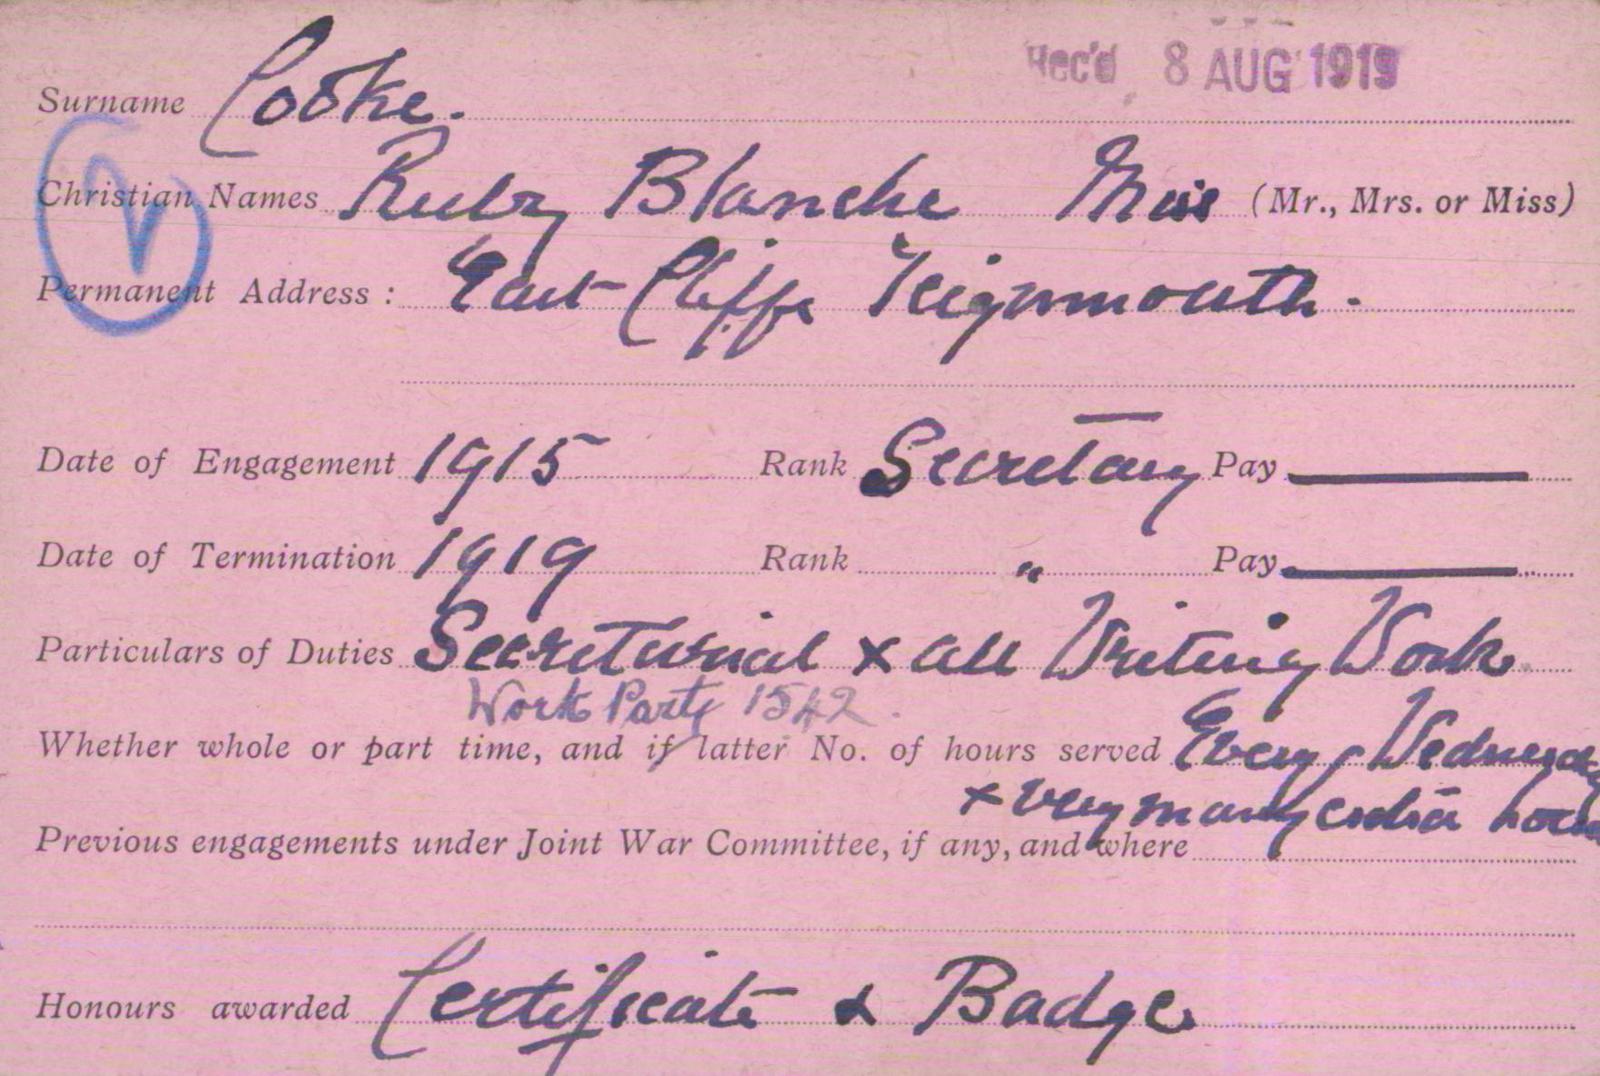 Rec'd 8 AUG 1919
Surname Cooke.
Christian Names Ruby Blanche Miss (Mr., Mrs. or Miss)
Permanent Address: East Cliffe Teignmouth.
Date of Engagement 1915 Rank Secretary Pay
Date of Termination 1919 Rank " Pay
Particulars of Duties Secretarial & all Writing Work.
Work Party 1542.
Whether whole or part time, and if latter No. of hours served Every Wednesday
& very many extra hours
Previous engagements under Joint War Committee, if any, and where
Honours awarded Certificate & Badge